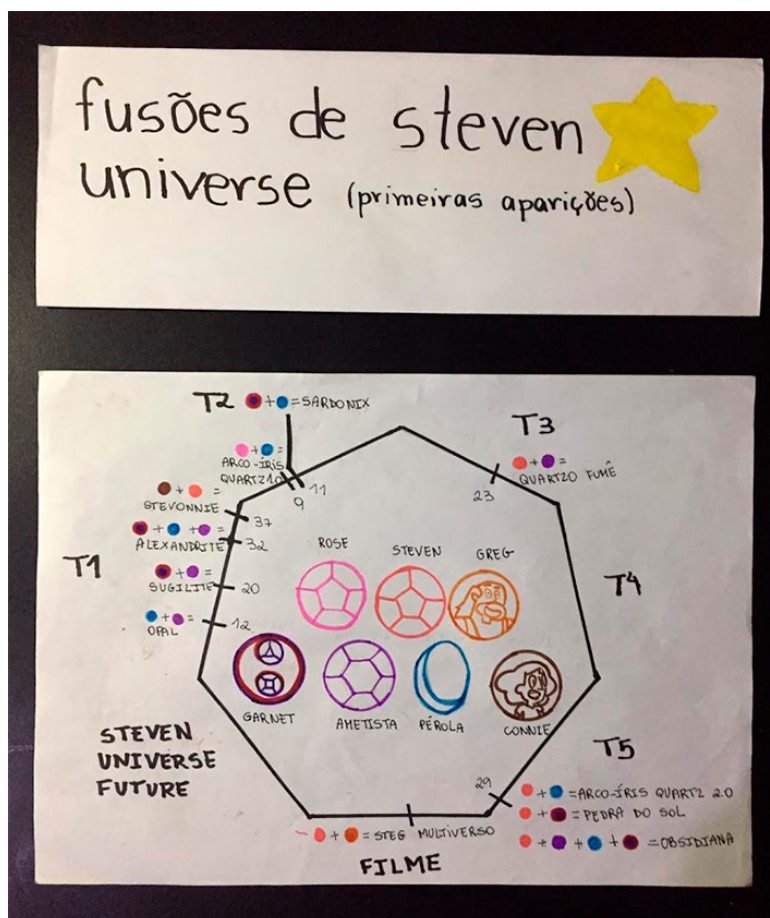 fusões de steven
universe (primeiras aparições)
T2
+ = SARDONIX
+ =
ARCO-ÍRIS
QUARTZ1.0
11
9
T3
+ =
QUARTZO FUMÊ
23
+ =
STEVONNIE
37
+ + =
ALEXANDRITE
32
T1
+ =
SUGILITE
20
+ =
OPAL
12
ROSE
STEVEN
GREG
T4
GARNET
AMETISTA
PÉROLA
CONNIE
STEVEN
UNIVERSE
FUTURE
T5
29
+ = ARCO-ÍRIS QUARTZ 2.0
+ = PEDRA DO SOL
+ + + = OBSIDIANA
+ = STEG MULTIVERSO
FILME